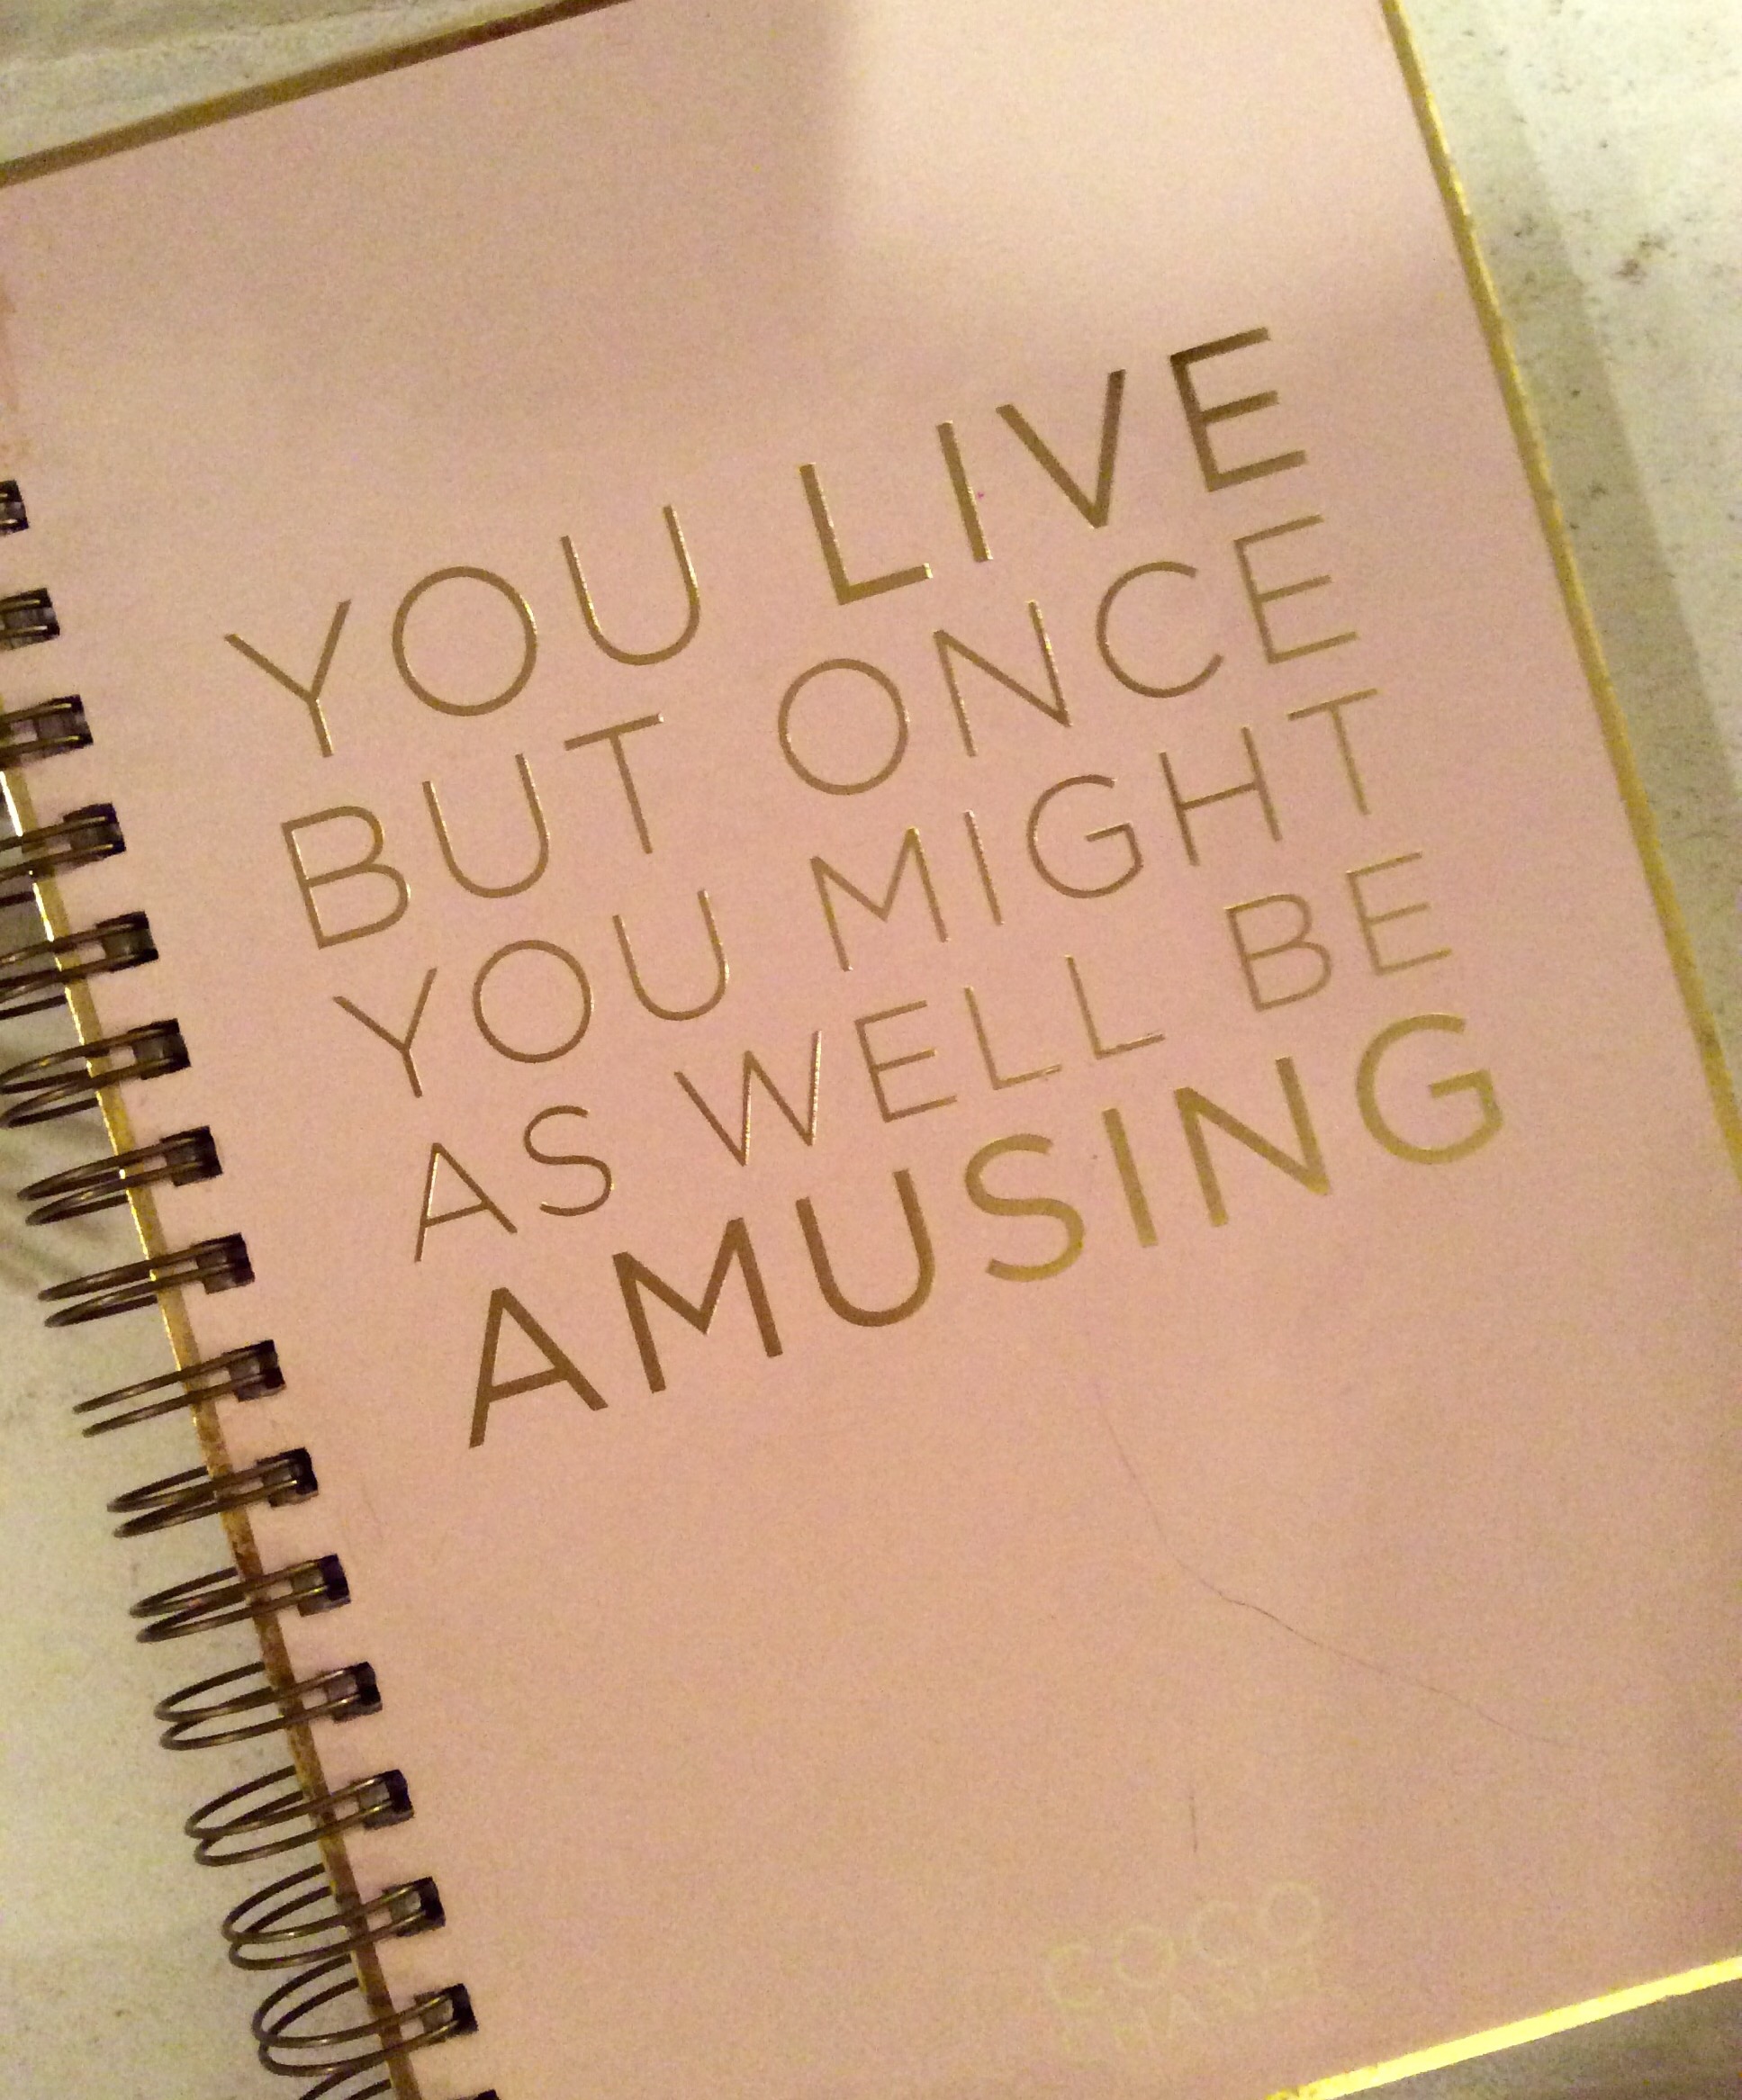 YOU LIVE
BUT ONCE
YOU MIGHT
AS WELL BE
AMUSING
COCO